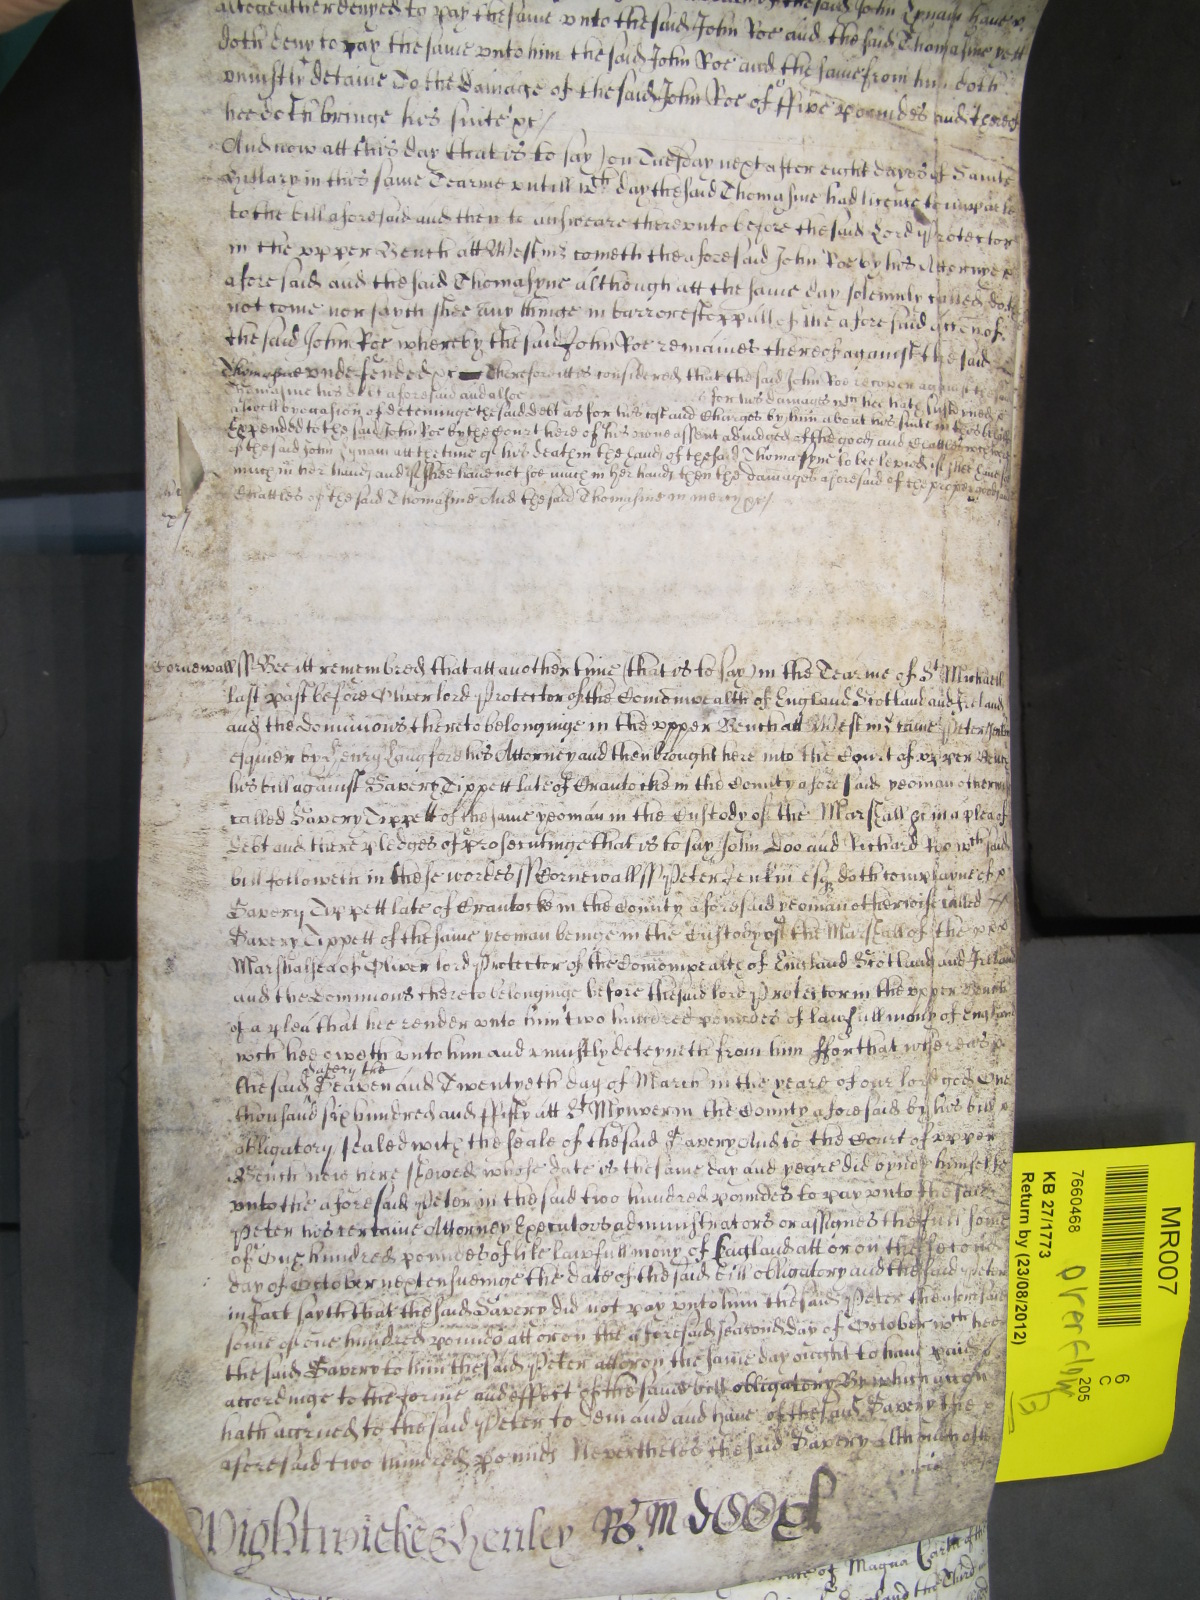 altogeather denyed to pay the same unto the said John Roe and the said Thomasine yett
doth deny to pay the same unto him the said John Roe and the same from him doth
uniustly detaine To the damage of the said John Roe of ffive poundes and thereof
hee doth bringe his suite &c/
And now att this day that is to say on Tuesday next after eight dayes of Sainte
Hillary in this same Tearme untill wch day the said Thomasine had licence to imparle
to the bill aforesaid and then to answeare thereunto before the said Lord Protector
in the upper Bench att Westmr cometh the aforesaid John Roe by his Attorney
aforesaid and the said Thomasyne although att the same day solemnly called doth
not come nor sayth shee any thinge in barr or estoppall of the aforesaid accon of
the said John Roe whereby the said John Roe remaines thereof against the said
Thomasine undefended &c Therefore itt is considered that the said John Roe recover against the said
Thomasine his debt aforesaid and alsoe for his damages wch hee hath susteyned
aswell by occasion of deteininge the said debt as for his cost and Charges by him about his suite in this behalfe
Expended to the said John Roe by the Court here of his owne assent adiudged of the goods and Chattles wch were
of the said John Lynam att the tyme of his death in the hands of the said Thomasyne to bee levied if shee have soe
much in her hands and if shee have not soe much in her hands then the damages aforesaid of the proper goods and
Chattles of the said Thomasine And the said Thomasine in mercy &c/
Cornewall ss Bee itt remembred that att another tyme (that is to say) in the Tearme of St Michaell
last past before Oliver lord Protector of the Comonwealth of England Scotland and Ireland
and the dominions thereto belonginge in the upper Bench att Westmr came Peter Jenkin
esquier by Henry Langford his Attorney and then brought here into the Court of upper Bench
his bill against Savery Tippett late of Crantocke in the County aforesaid yeoman otherwise
called Savery Tippett of the same yeoman in the Custody of the Marshall &c in a plea of
debt and there pledges of prosecutinge that is to say John Doo and Richard Roo wch said
bill followeth in these wordes ss Cornewall ss Peter Jenkin esqr doth complayne of
Savery Tippett late of Crantocke in the County aforesaid yeoman otherwise called
Savery Tippett of the same yeoman beinge in the Custody of the Marshall of the
Marshalsea of Oliver lord Protector of the Comonwealth of England Scotland and Ireland
and the dominions thereto belonginge before the said lord Protector in the upper Bench
of a plea that hee render unto him two hundred poundes of lawfull mony of England
wch hee oweth unto him and uniustly deteyneth from him ffor that whereas
the said Savery the Seaven and Twentyeth day of March in the yeare of our lord god One
thousand six hundred and ffifty att St Mynver in the County aforesaid by his bill
obligatory sealed with the seale of the said Savery And to the Court of upper
Bench now here shewed whose date is the same day and yeare did bynd himselfe
unto the aforesaid Peter in the said two hundred poundes to pay unto the said
Peter his certaine Attorney Executors administrators or assignes the full some
of One hundred poundes of like lawfull mony of England att or on the second
day of October next ensueinge the date of the said bill obligatory and the said Peter
in fact sayth that the said Savery did not pay unto him the said Peter the aforesaid
some of one hundred pounds att or on the aforesaid second day of October wch hee
the said Savery to him the said Peter att or on the same day ought to have paid
accordinge to the forme and effect of the said bill obligatory By which accon
hath accrued to the said Peter to demaund and have of the said Savery the
aforesaid two hundred pounds Neverthelesse the said Savery although
Wightwicke &
MR007
6
C
205
7660468
KB 27/1773
Return by (23/08/2012)
overflow